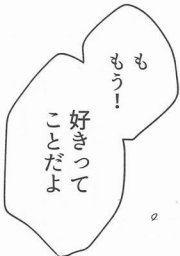 も
もう！
好きって
ことだよ